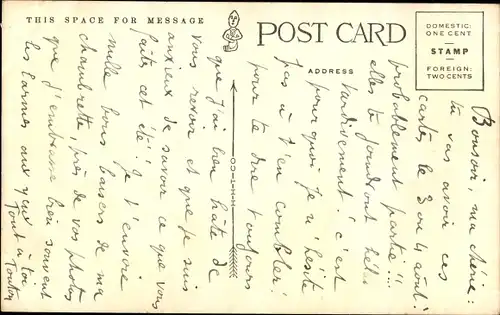 THIS SPACE FOR MESSAGE
POST CARD
ADDRESS
DOMESTIC:
ONE CENT
STAMP
FOREIGN:
TWO CENTS
Bonsoir, ma chérie:
tu vas avoir ces
cartes le 3 ou 4 août!
probablement partie!!
elles te joindront
tardivement! c'est
pourquoi je n'hésite
pas à t'en combler!
pour te dire toujours
que j'ai bien hâte de
vous revoir et que je suis
anxieux de savoir ce que vous
faites cet été! Je t'envoie
mille bons baisers de ma
chambrette près de vos photos
que j'embrasse bien souvent
les larmes aux yeux
Tout à toi
Toutou